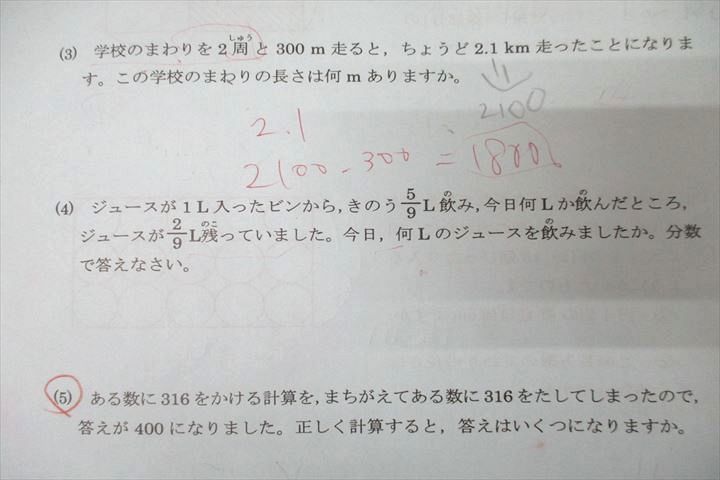 (3) 学校のまわりを2周と300 m走ると，ちょうど2.1 km走ったことになりま
す。この学校のまわりの長さは何mありますか。
2100
2.1
2100 - 300 = 1800
(4) ジュースが1L入ったビンから，きのう5/9L飲み，今日何Lか飲んだところ，
ジュースが2/9L残っていました。今日，何Lのジュースを飲みましたか。分数
で答えなさい。
(5) ある数に316をかける計算を，まちがえてある数に316をたしてしまったので，
答えが400になりました。正しく計算すると，答えはいくつになりますか。